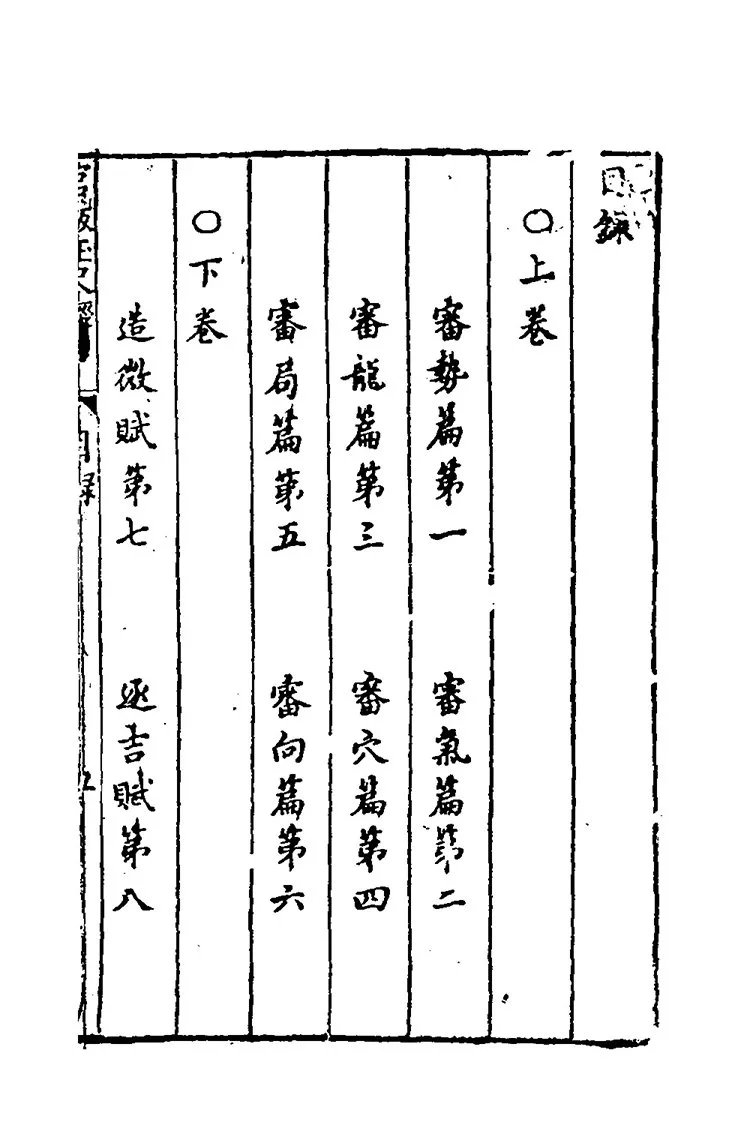 目錄
〇上卷
審勢篇第一 審氣篇第二
審龍篇第三 審穴篇第四
審局篇第五 審向篇第六
〇下卷
造微賦第七 逐吉賦第八
目録